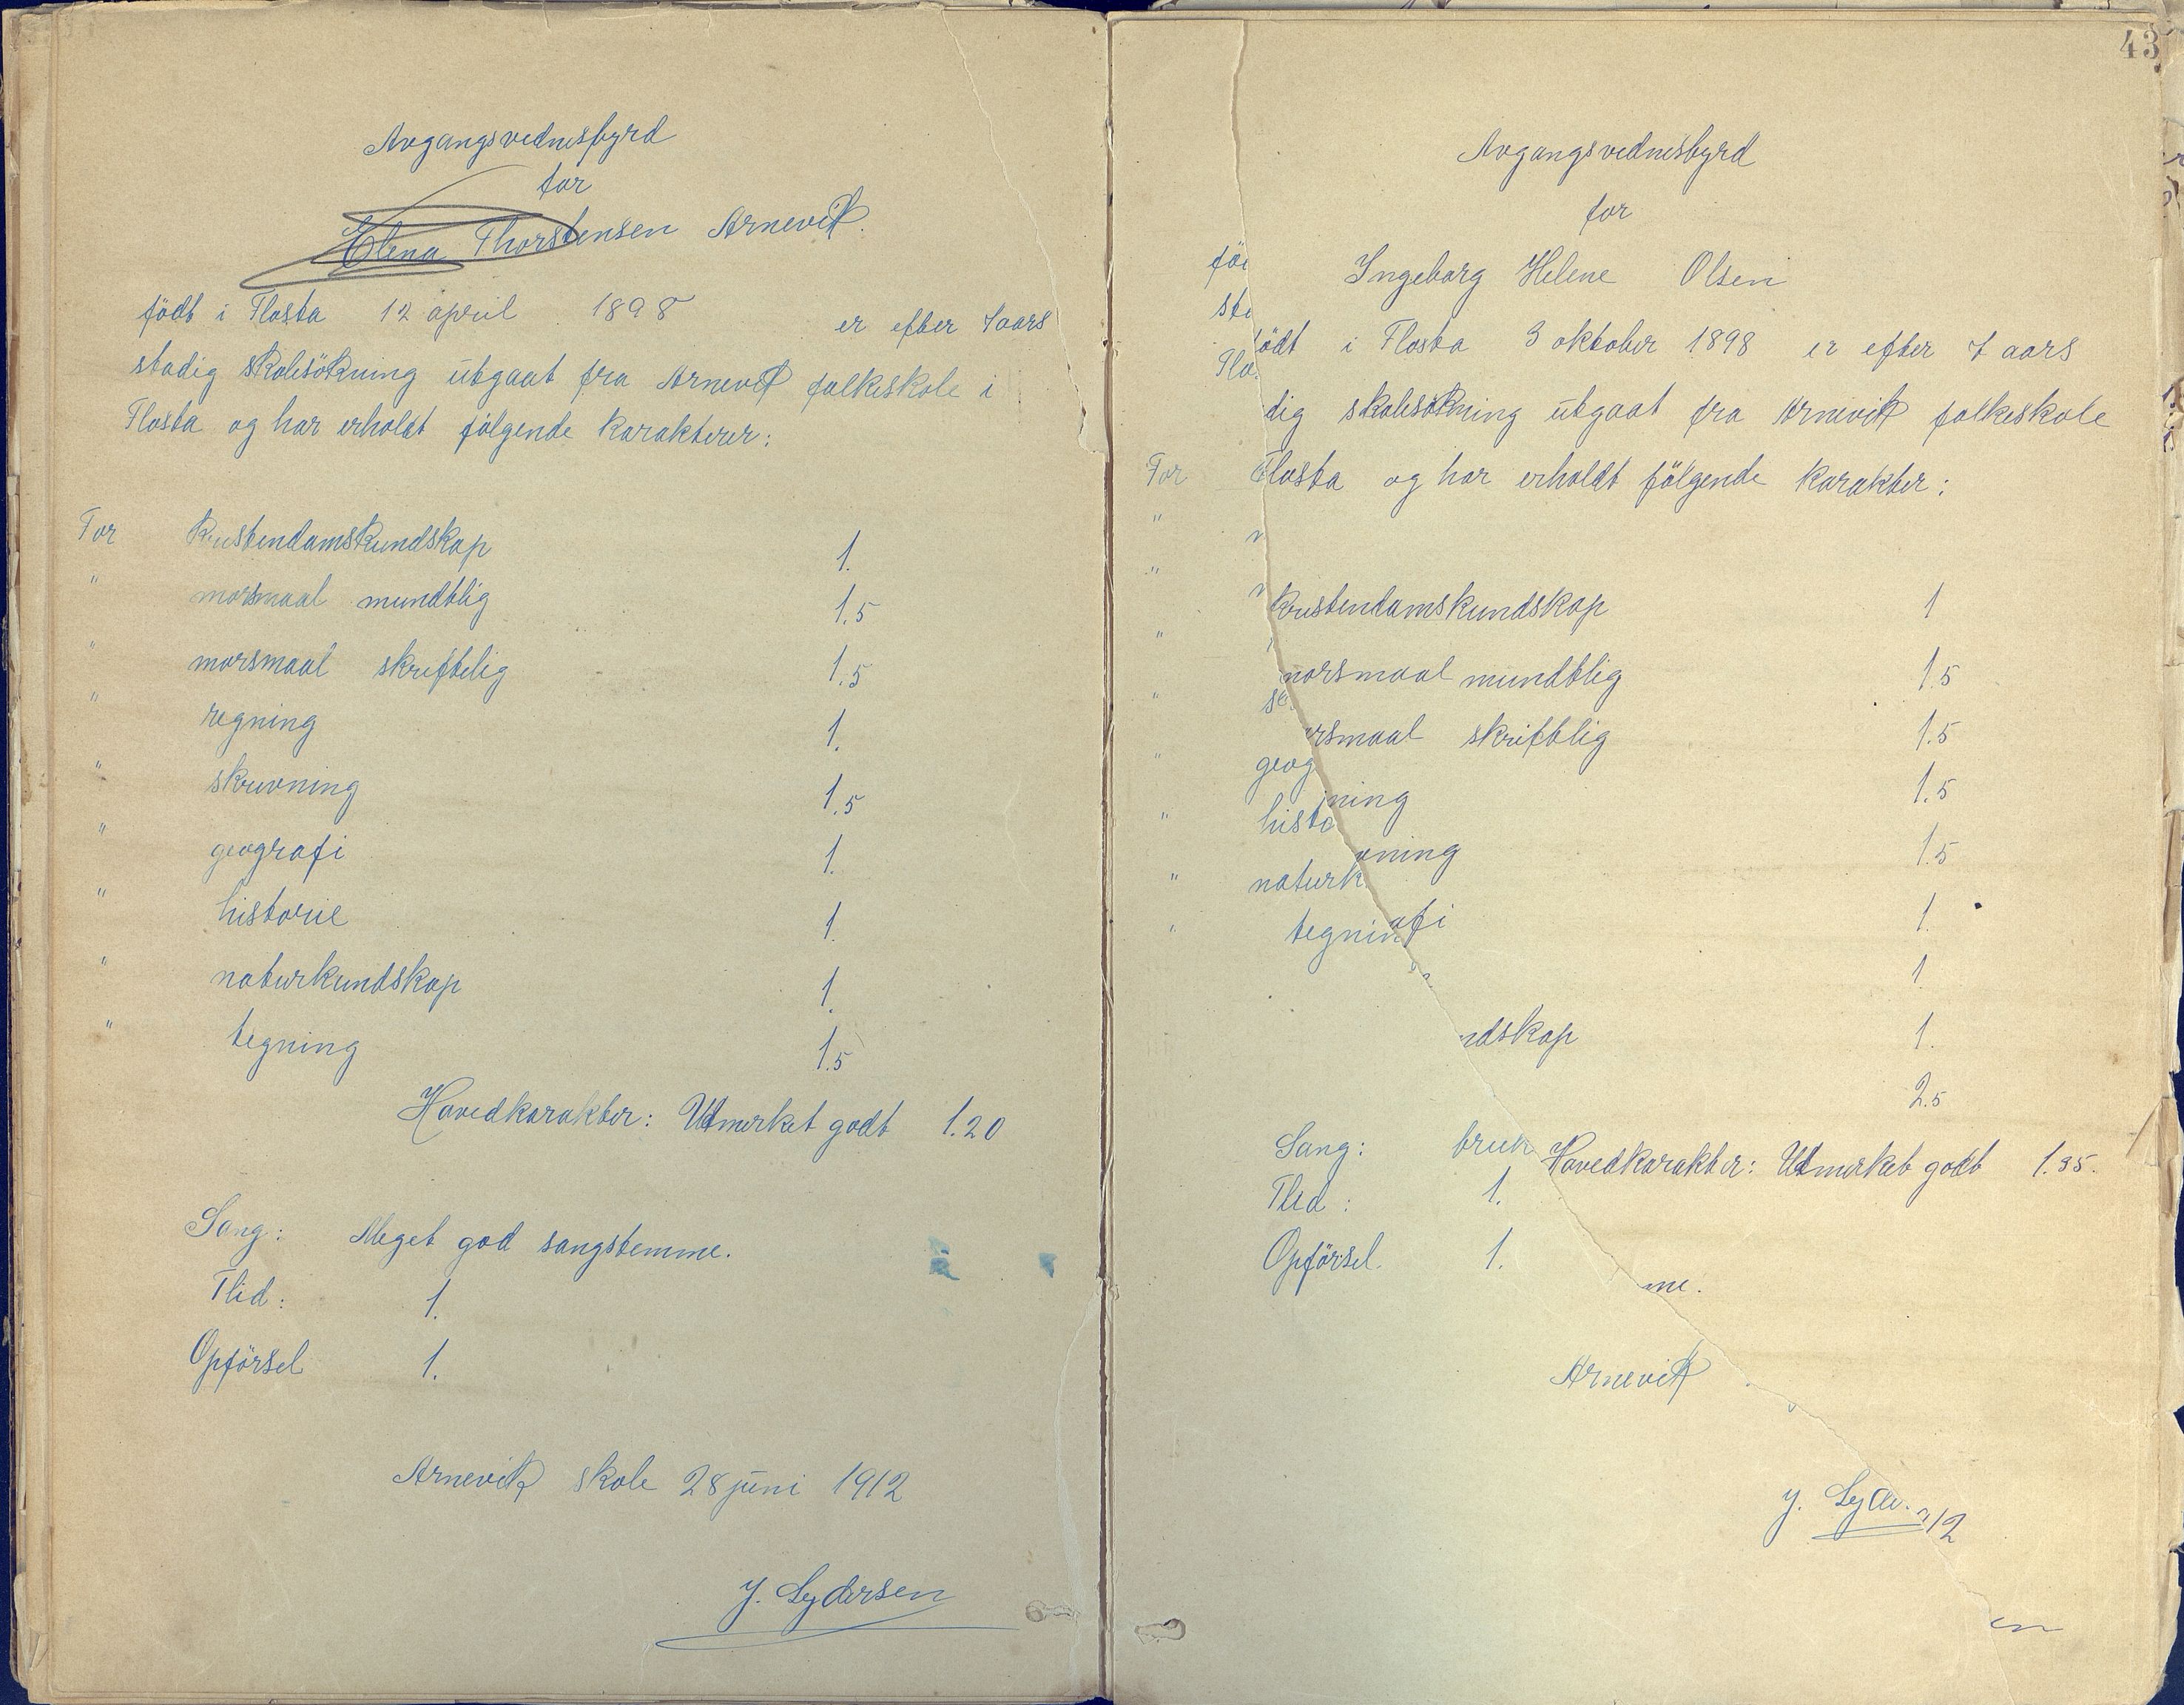 Avgangsvednesbyrd
for
Elena Thorstensen Arnevik.
födt i Flosta 12 april 1898 er efter 7 aars
stadig skolesökning utgaat fra Arnevik folkeskole i
Flosta og har erholdt fölgende karakterer:
For kristendomskundskap 1.
" morsmaal mundtlig 1.5
" morsmaal skriftelig 1.5
" regning 1.
" skrivning 1.5
" geografi 1.
" historie 1.
" naturkundskap 1.
" tegning 1.5
Hovedkarakter: Utmerket godt 1.20
Sang: Meget god sangstemme.
Flid: 1.
Opförsel 1.
Arnevik skole 28 juni 1912
J. Lydersen
43
Avgangsvednesbyrd
for
Ingeborg Helene Olsen
födt i Flosta 3 oktober 1898 er efter 7 aars
dig skolesökning utgaat fra Arnevik folkeskole
For Flosta og har erholdt fölgende karakter:
kristendamskundskap 1
morsmaal mundtlig 1.5
rsmaal skriftlig 1.5
geog
ning 1.5
histo
vning 1.5
naturk
afi 1.
tegnin
1.
ndskap 1.
2.5
Hovedkarakter: Utmerket godt 1.35.
Sang: bruk
Flid: 1.
Opförsel. 1.
me.
Arnevik
J. Lyde
12
en